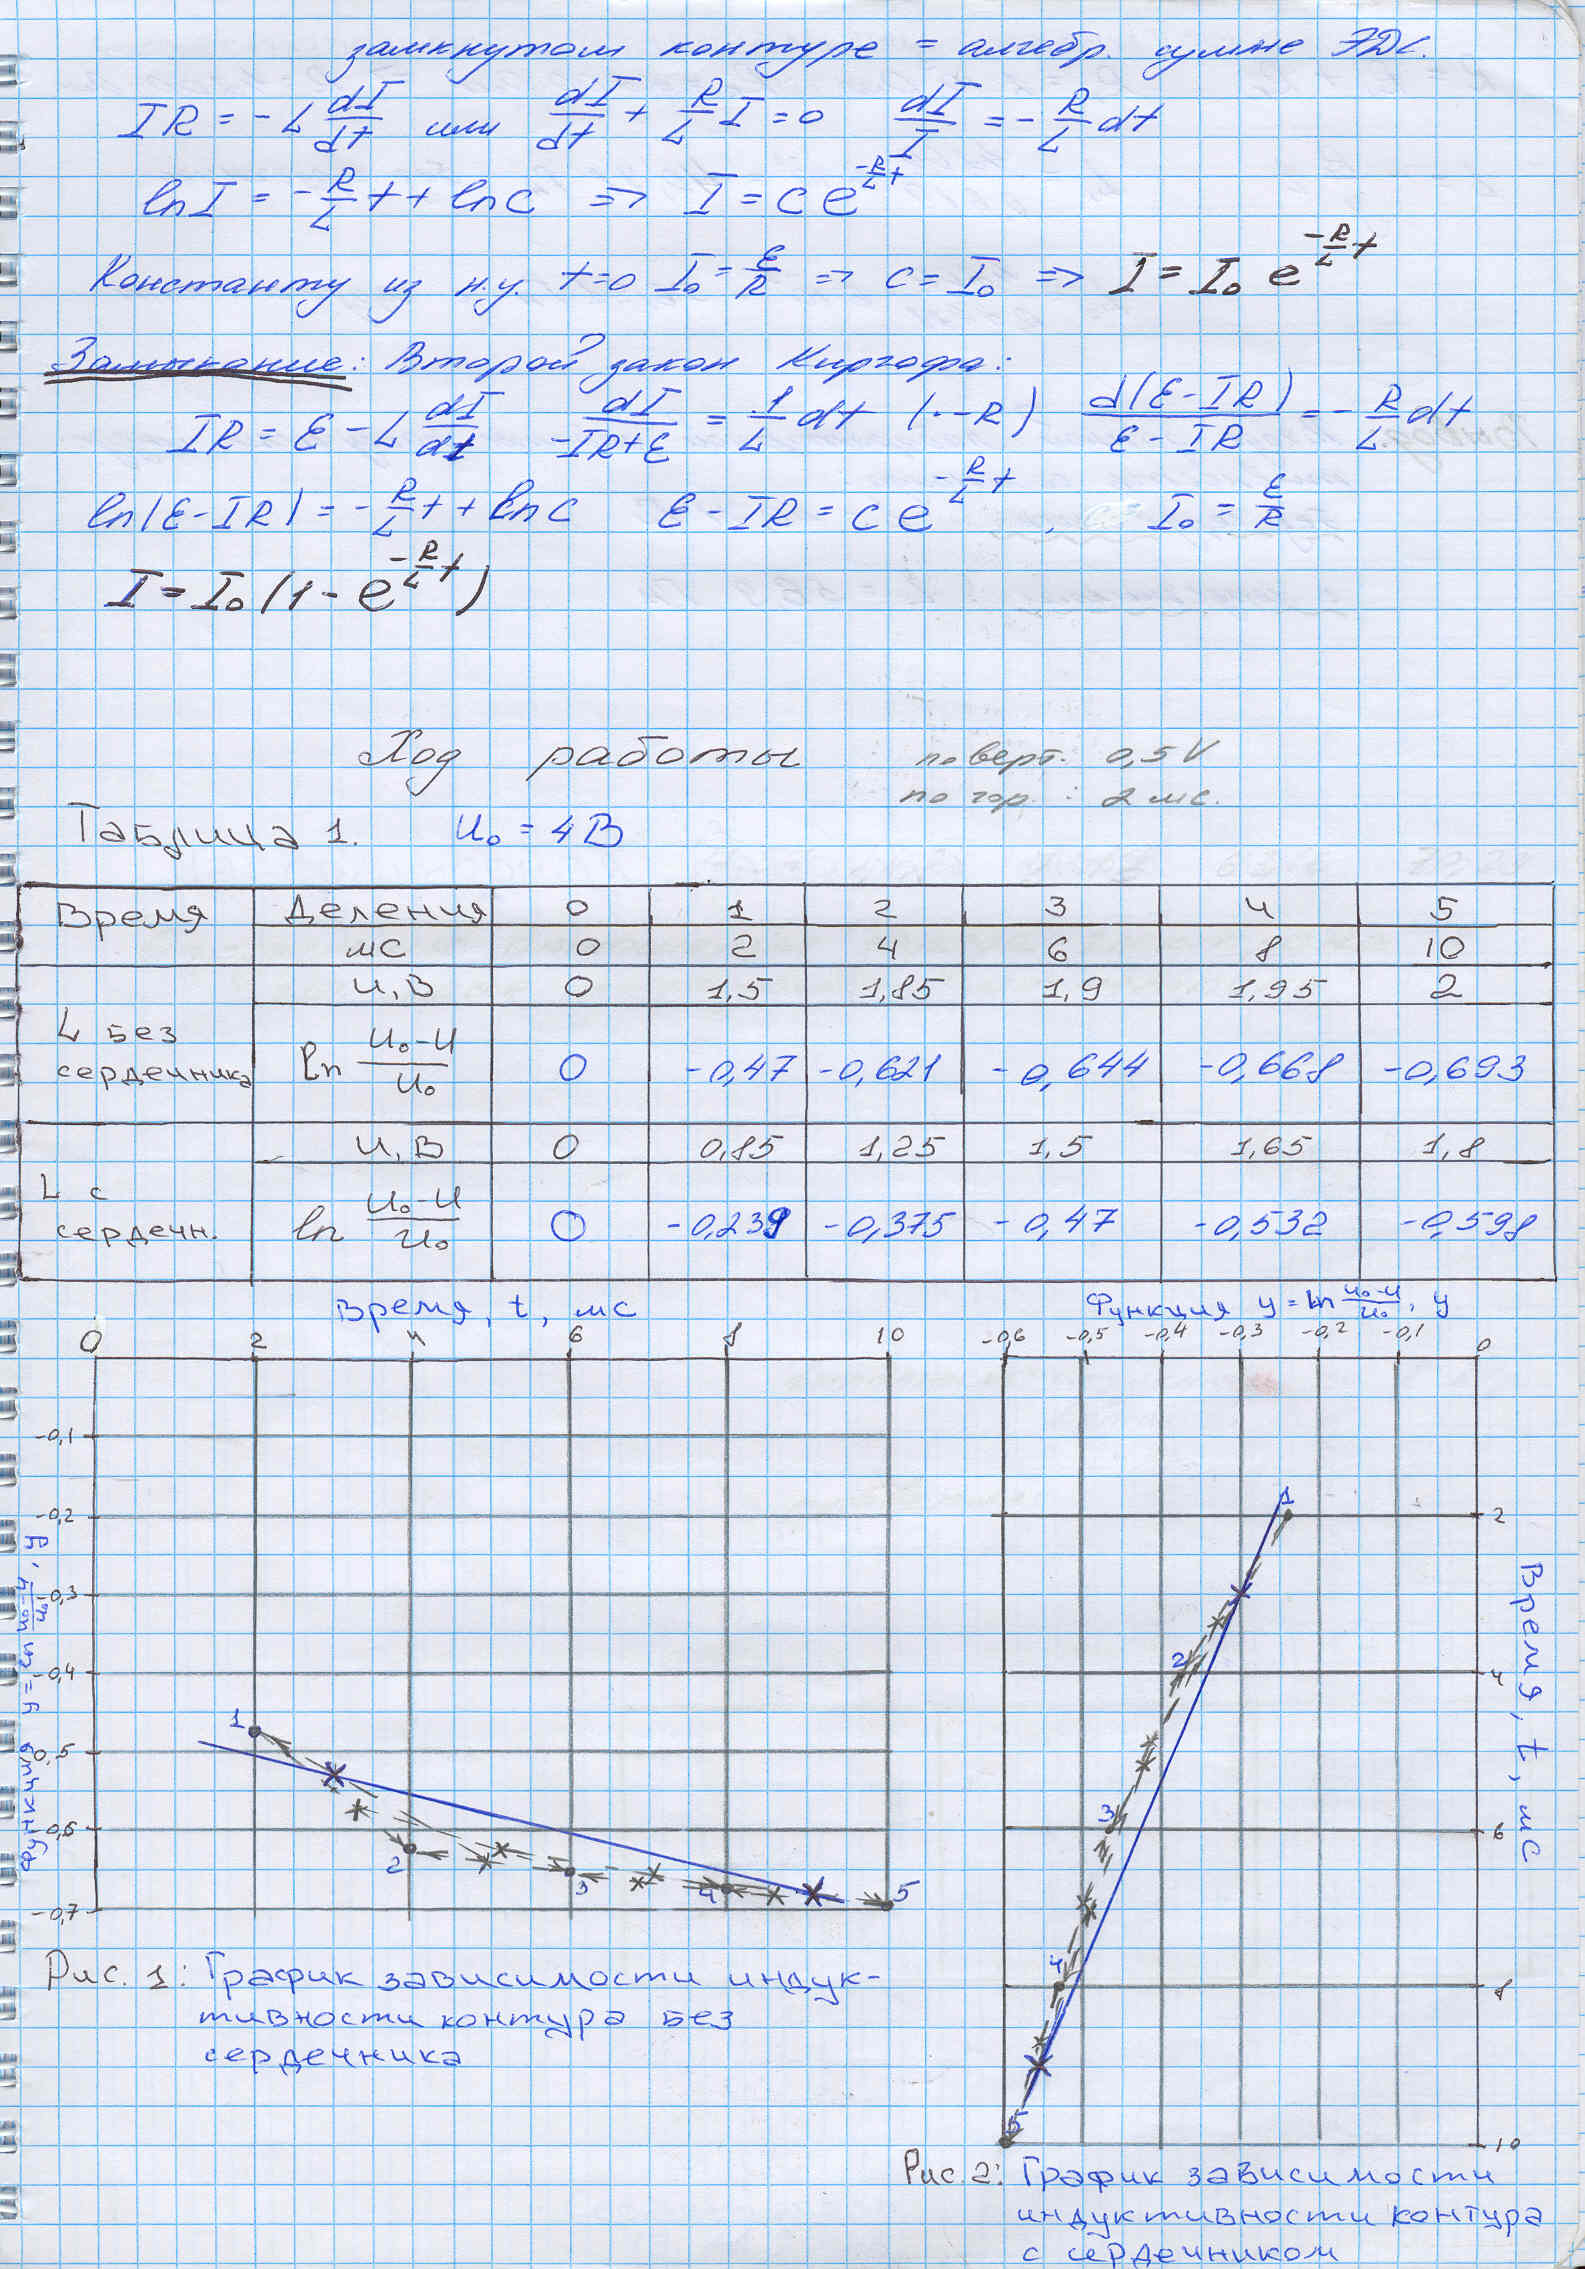 замкнутом контуре = алгебр. сумме ЭДС.
IR = -L dI/dt или dI/dt + R/L I = 0 dI/I = -R/L dt
ln I = -R/L t + ln c => I = c e^(-R/L t)
Константу из н.у. t=0 I₀ = ε/R => c = I₀ => I = I₀ e^(-R/L t)
Замыкание: Второй закон Киргофа:
IR = ε - L dI/dt dI/(-IR+ε) = 1/L dt (·-R) d(ε-IR)/(ε-IR) = -R/L dt
ln(ε-IR) = -R/L t + ln c ε - IR = c e^(-R/L t), I₀ = ε/R
I = I₀ (1 - e^(-R/L t))
Ход работы
по верт. 0,5 V
по гор. : 2 мс.
Таблица 1. U₀ = 4 В
Время Деления 0 1 2 3 4 5
мс 0 2 4 6 8 10
L без сердечника U, В 0 1,5 1,85 1,9 1,95 2
ln (U₀-U)/U₀ 0 -0,47 -0,621 -0,644 -0,668 -0,693
L с сердечн. U, В 0 0,85 1,25 1,5 1,65 1,8
ln (U₀-U)/U₀ 0 -0,239 -0,375 -0,47 -0,532 -0,598
Время, t, мс
0 2 4 6 8 10
-0,1
-0,2
-0,3
-0,4
-0,5
-0,6
-0,7
Функция y = ln (U₀-U)/U₀, y
1
2
3
4
5
Рис. 1: График зависимости индук-
тивности контура без
сердечника
Функция y = ln (U₀-U)/U₀, y
-0,6 -0,5 -0,4 -0,3 -0,2 -0,1 0
2
4
6
8
10
Время, t, мс
1
2
3
4
5
Рис. 2: График зависимости
индуктивности контура
с сердечником